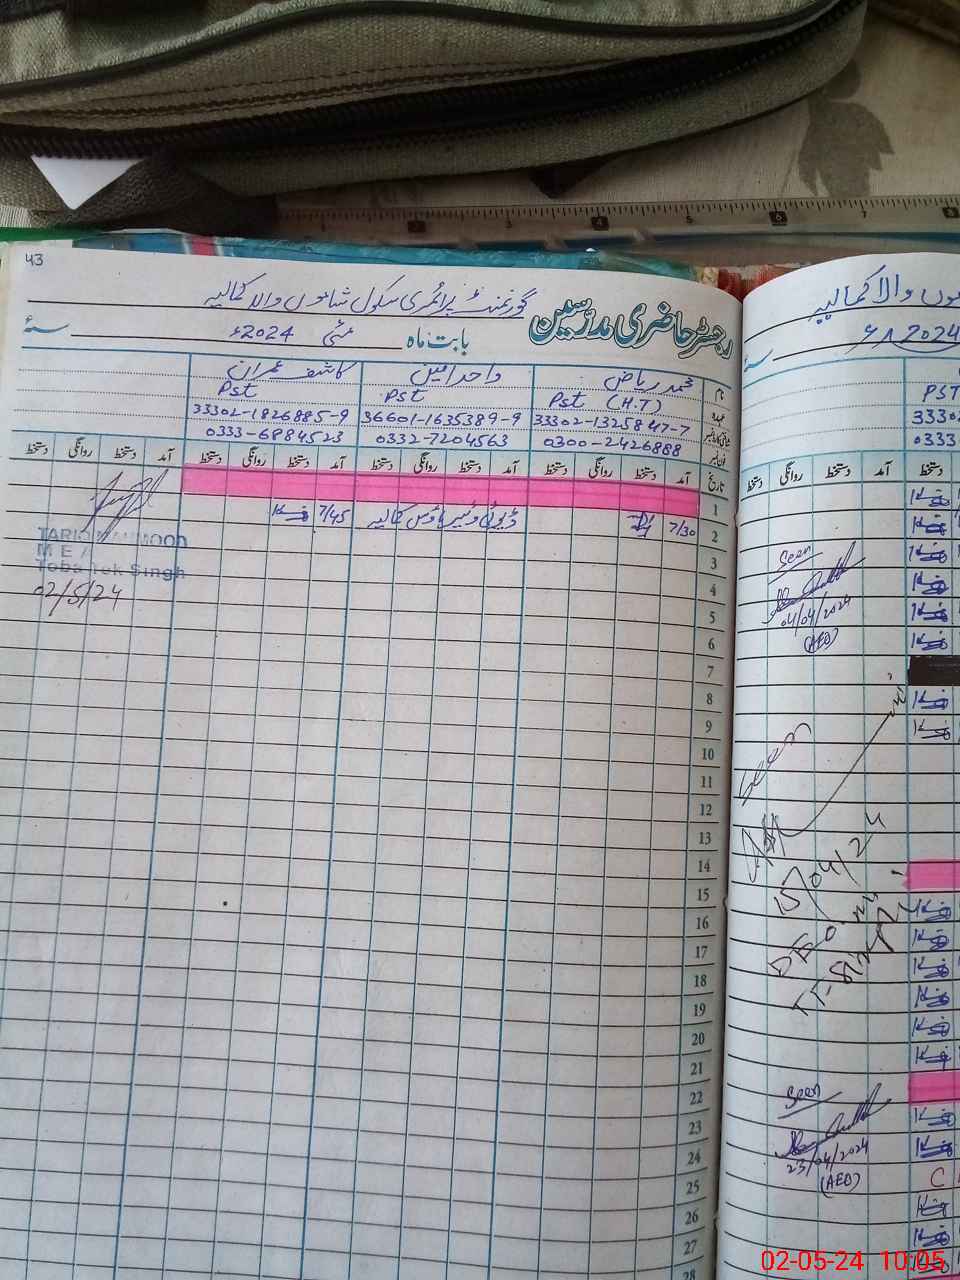 43
گورنمنٹ پرائمری سکول شاہوں والا کمالیہ
رجسٹر حاضری مدرسین
بابت ماہ مئی 2024ء سنۂ
نام محمد ریاض واحد امین کاشف عمران
عہدہ Pst (H.T) Pst Pst
شناختی کارڈ نمبر 33302-1325847-7 36601-1635389-9 33302-1826885-9
فون نمبر 0300-2426888 0332-7204563 0333-6884523
تاریخ آمد دستخط روانگی دستخط آمد دستخط روانگی دستخط آمد دستخط روانگی دستخط آمد دستخط روانگی دستخط
1
2 7/30 ڈیوٹی کمالیہ 7/45
3
4
5
6
7
8
9
10
11
12
13
14
15
16
17
18
19
20
21
22
23
24
25
26
27
28
TARIQ MAHMOOD
MEA
Toba Tek Singh
02/5/24
والا کمالیہ
2024
سنۂ
PST
3330
0333
دستخط روانگی دستخط آمد دستخط
Seen
04/04/2024
(AEO)
Seen
15/04/24
Seen
23/04/2024
(AEO)
C
1 2 3 4 5 6 7 8
02-05-24 10:05